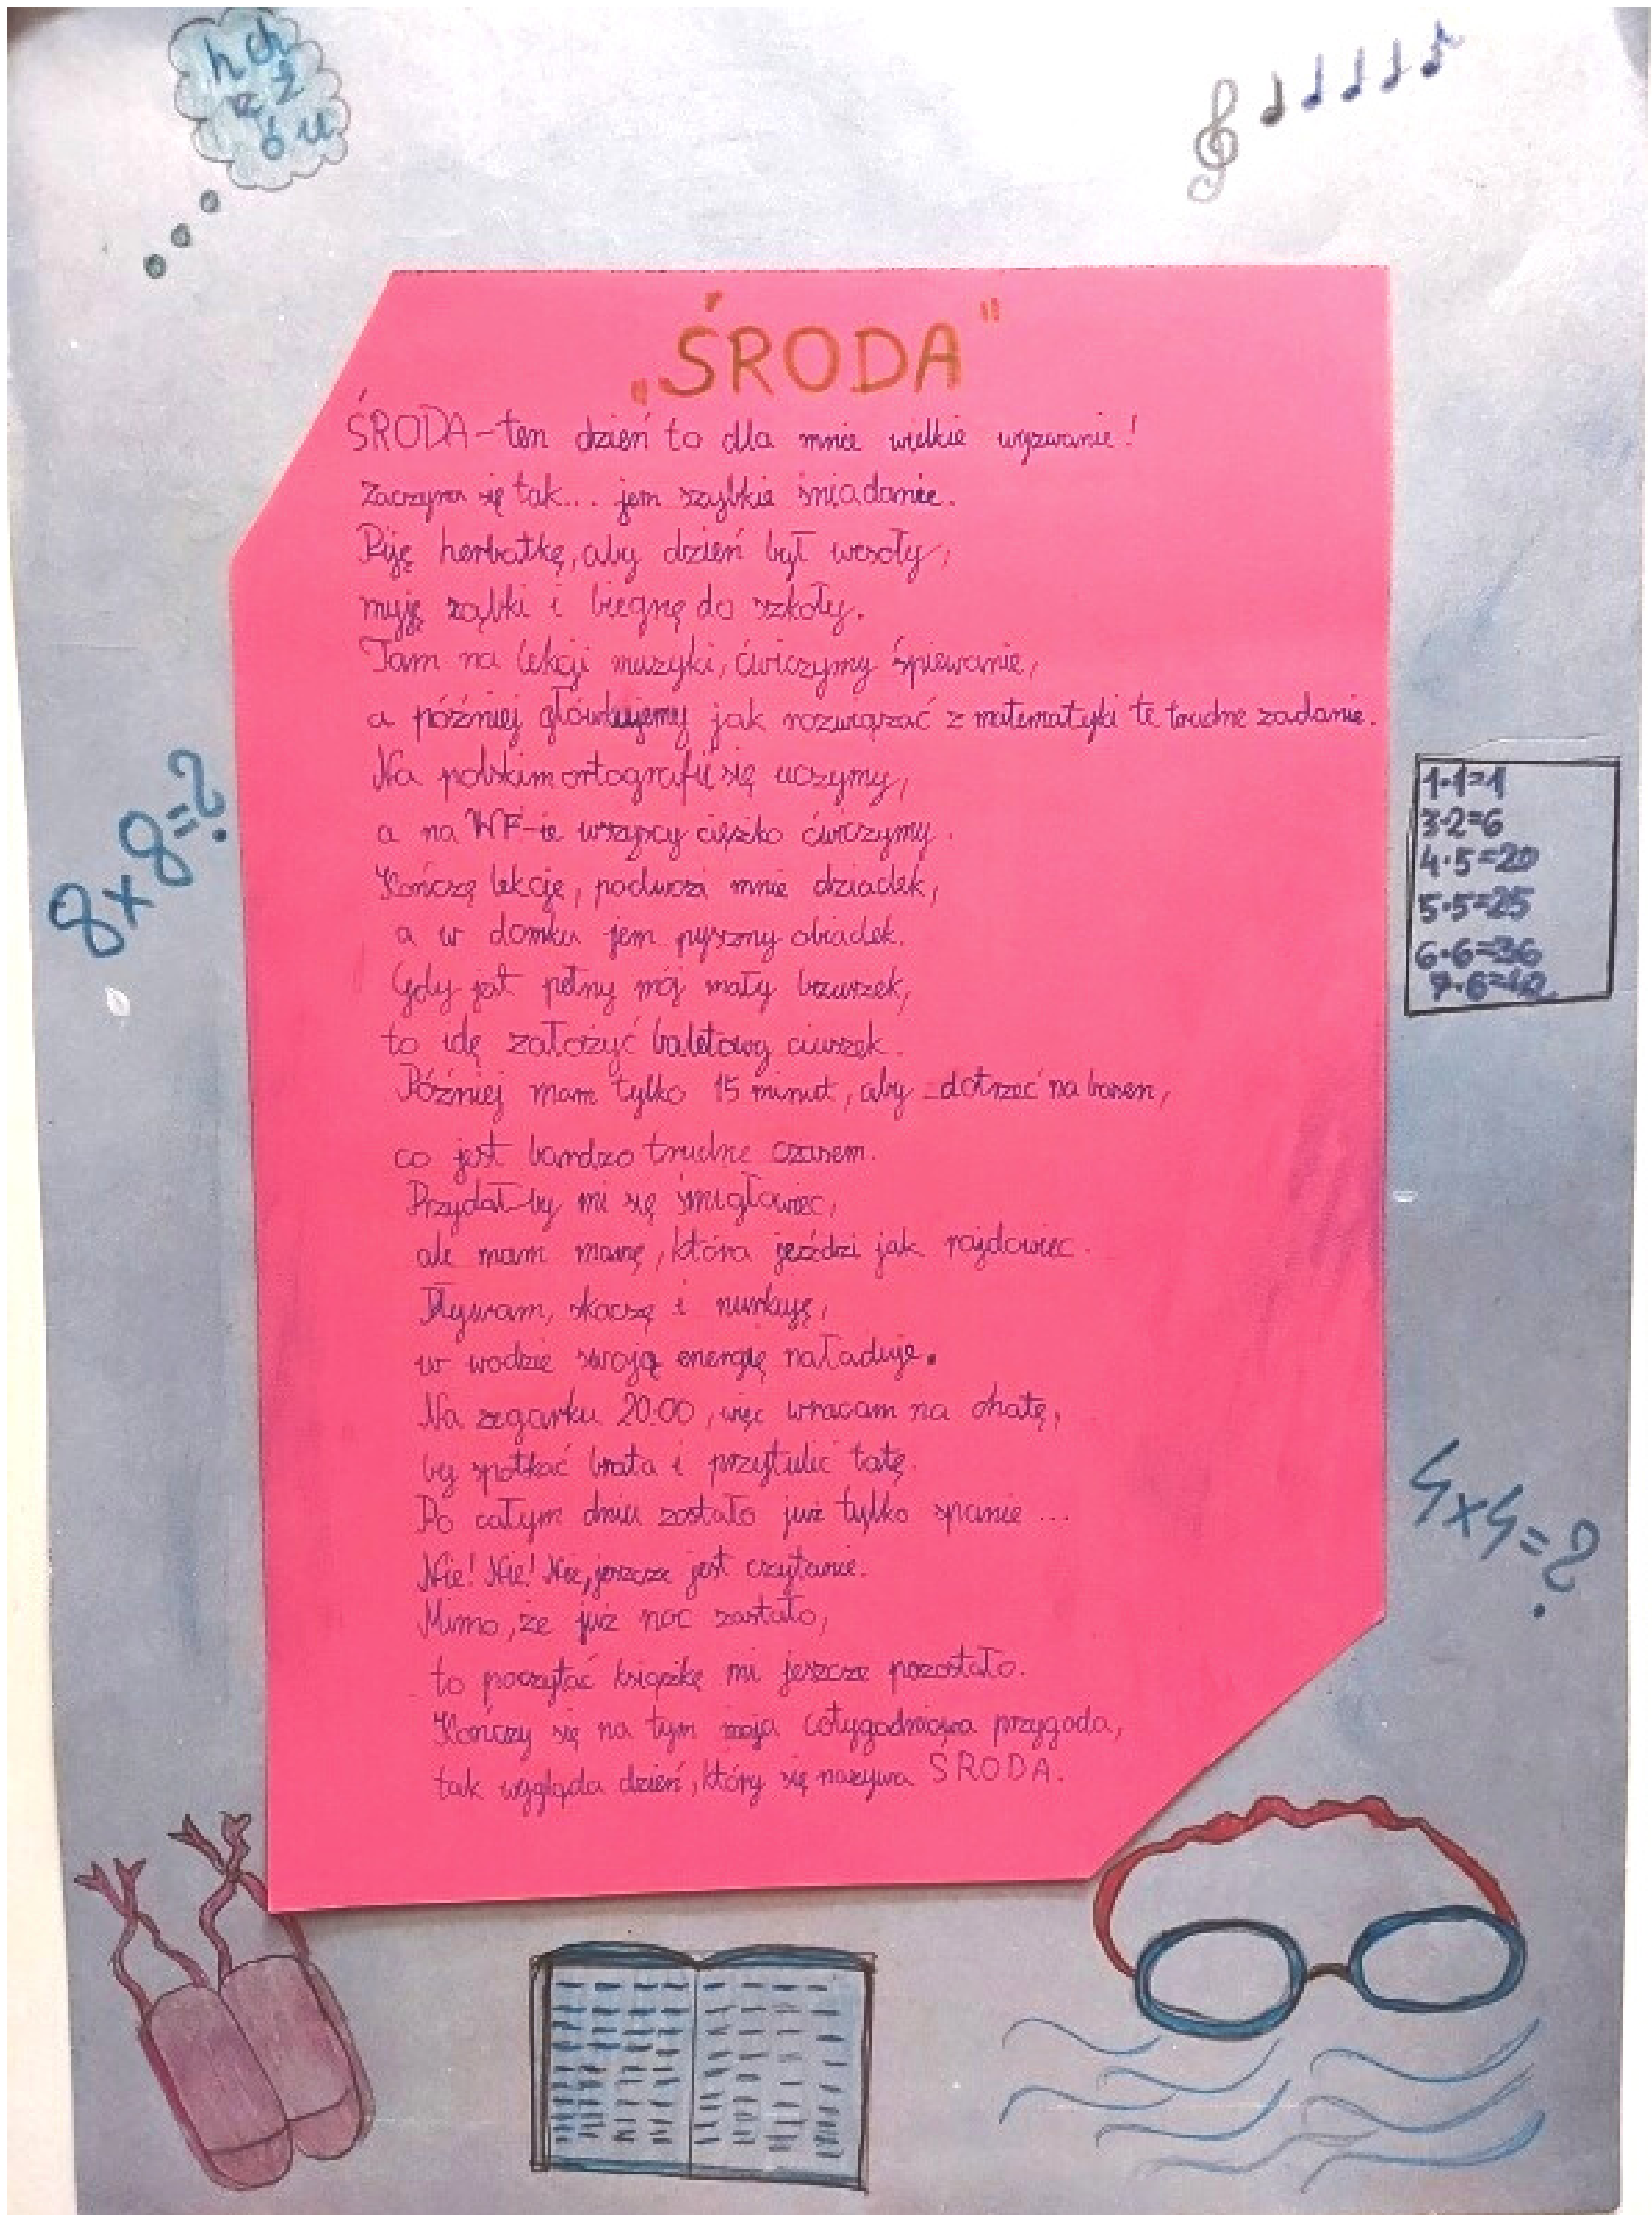 h ch
rz ż
ó u
„ŚRODA"
ŚRODA - ten dzień to dla mnie wielkie wyzwanie!
Zaczyna się tak... jem szybkie śniadanie.
Piję herbatkę, aby dzień był wesoły,
myję ząbki i biegnę do szkoły.
Tam na lekcji muzyki, ćwiczymy śpiewanie,
a później główkujemy jak rozwiązać z matematyki te trudne zadanie.
Na polskim ortografii się uczymy,
a na WF-ie wszyscy ciężko ćwiczymy.
Kończę lekcje, podwozi mnie dziadek,
a w domku jem pyszny obiadek.
Gdy jest pełny mój mały brzuszek,
to idę założyć baletowy ciuszek.
Później mam tylko 15 minut, aby dotrzeć na basen,
co jest bardzo trudne czasem.
Przydał by mi się śmigłowiec,
ale mam mamę, która jeździ jak rajdowiec.
Pływam, skaczę i nurkuję,
w wodzie swoją energię naładuje.
Na zegarku 20:00, więc wracam na chatę,
by spotkać brata i przytulić tatę.
Po całym dniu zostało już tylko spanie...
Nie! Nie! Nie, jeszcze jest czytanie.
Mimo, że już noc zastało,
to poczytać książkę mi jeszcze pozostało.
Kończy się na tym moja cotygodniowa przygoda,
tak wygląda dzień, który się nazywa ŚRODA.
8x8=?
1·1=1
3·2=6
4·5=20
5·5=25
6·6=36
7·6=42
4x4=?